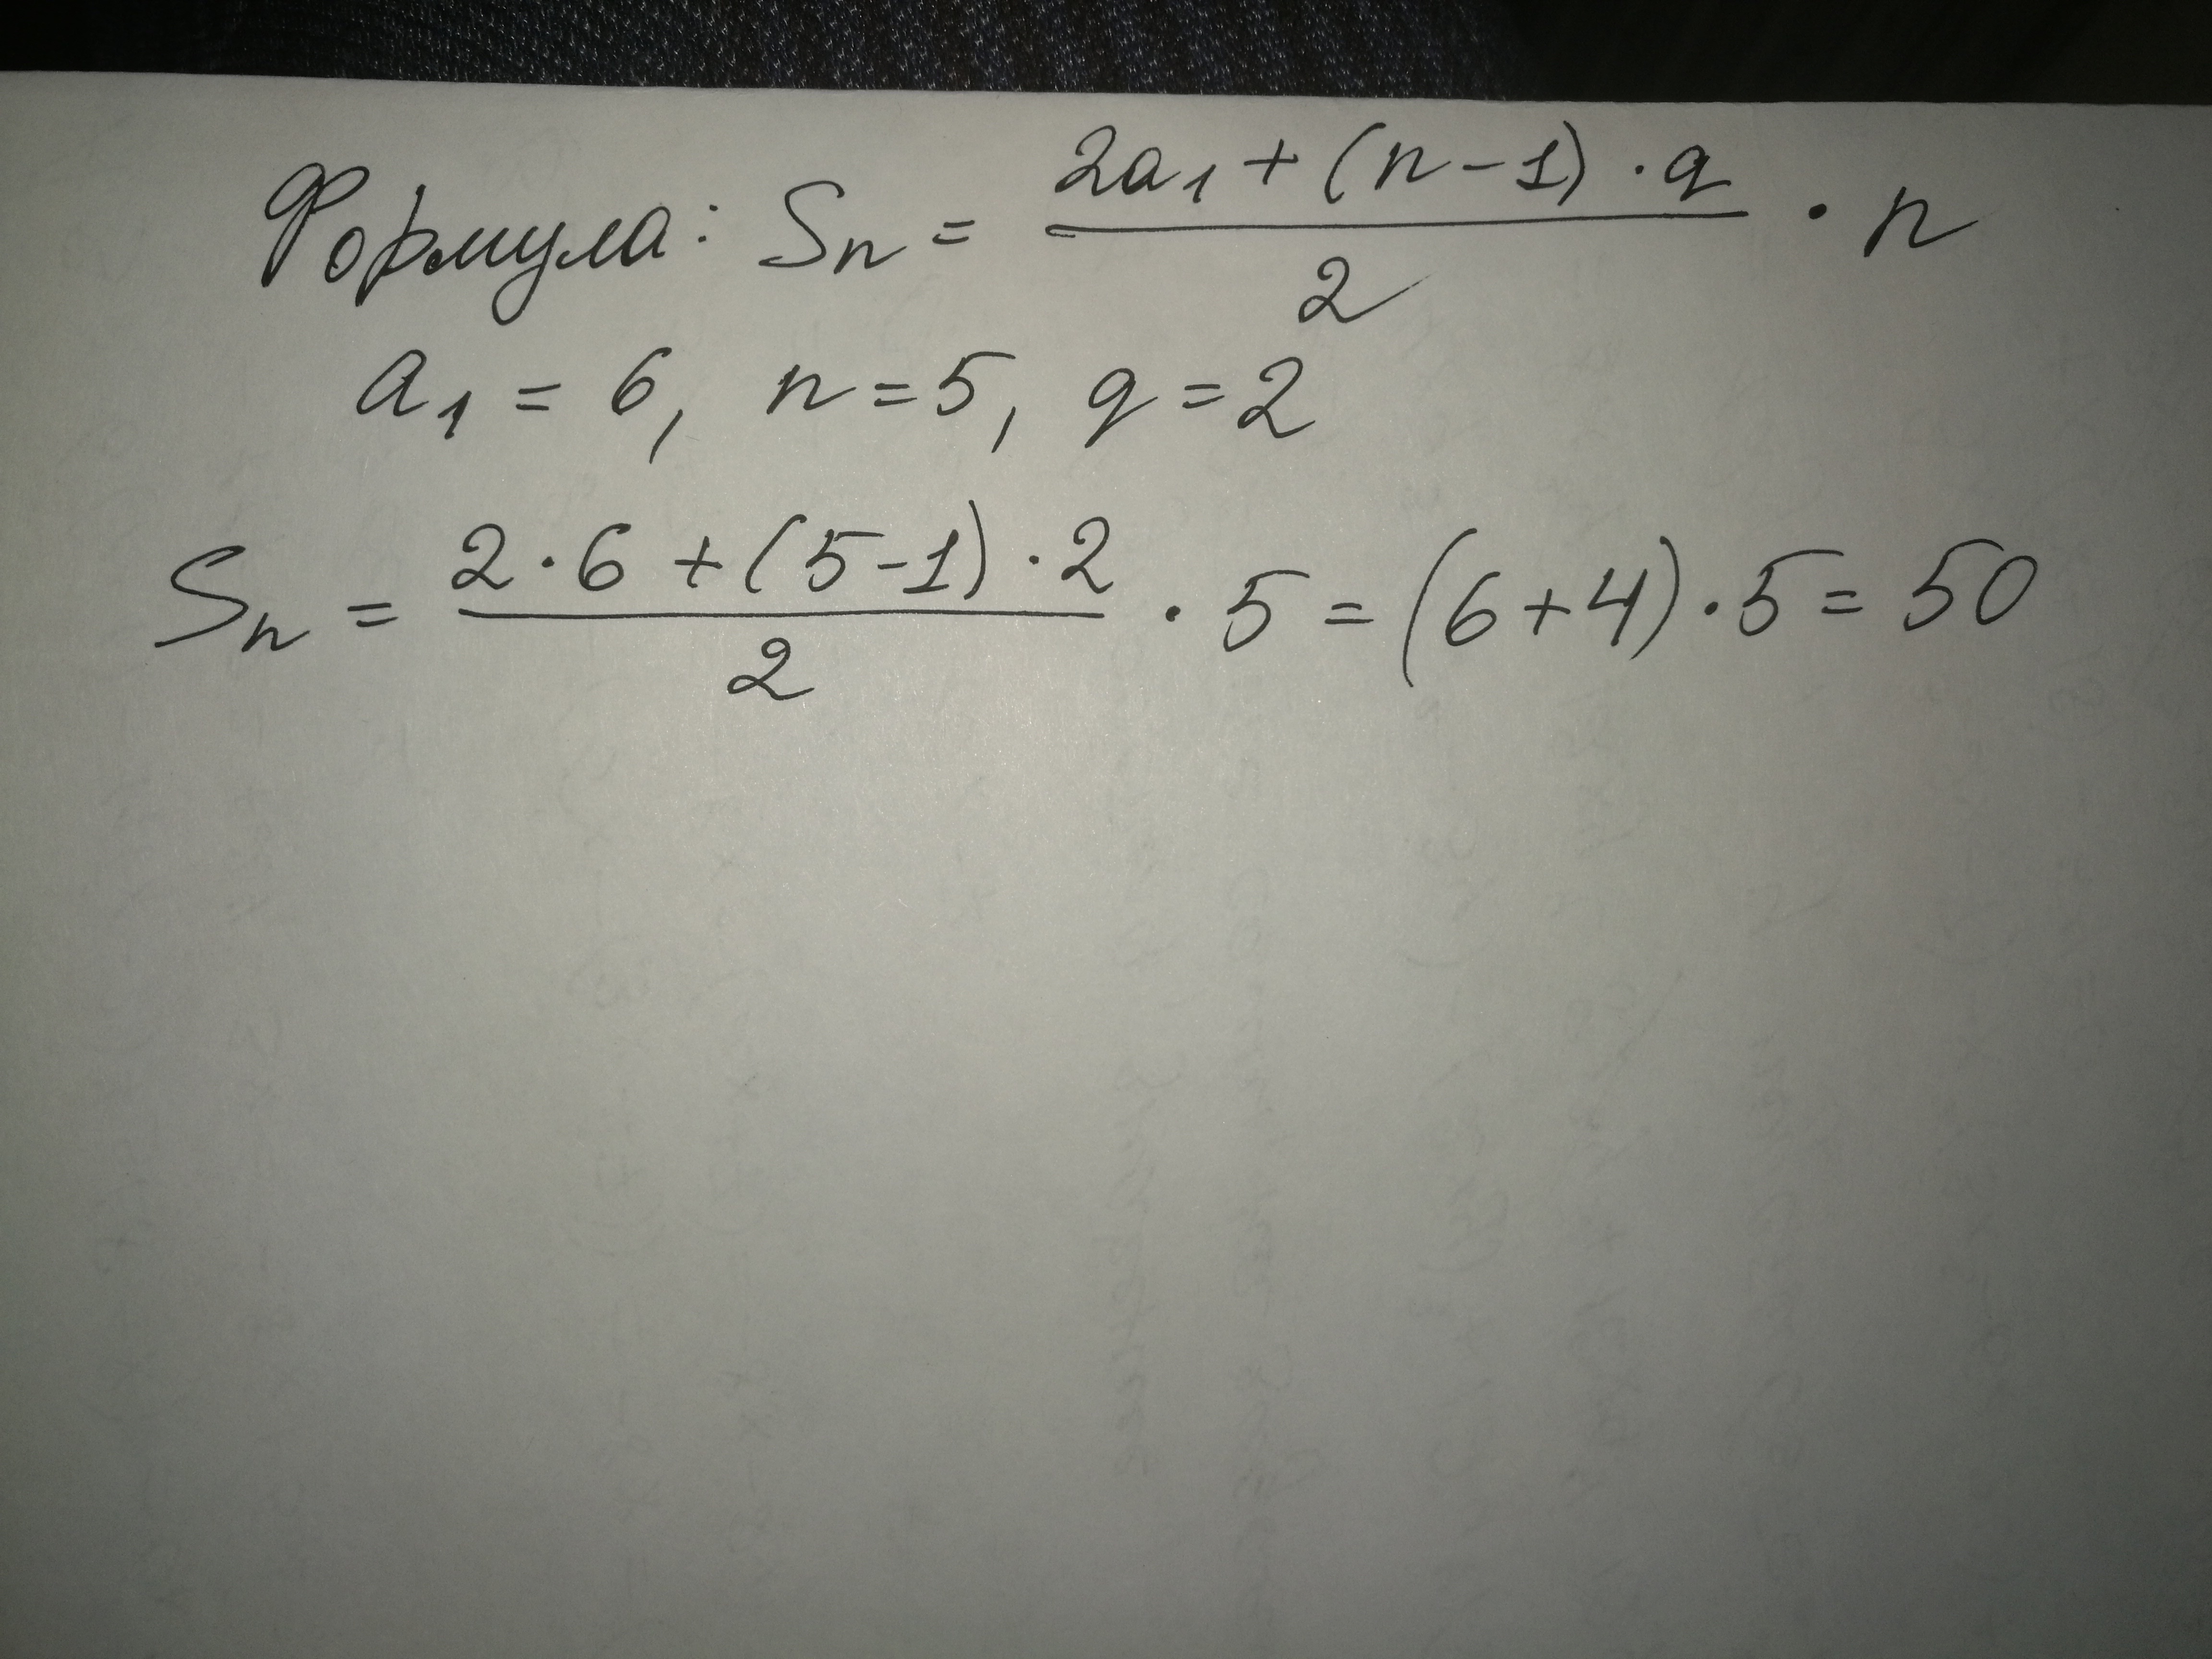 Формула: Sn = (2a₁ + (n-1) · q)/2 · n
a₁ = 6, n = 5, q = 2
Sn = (2 · 6 + (5-1) · 2)/2 · 5 = (6+4) · 5 = 50